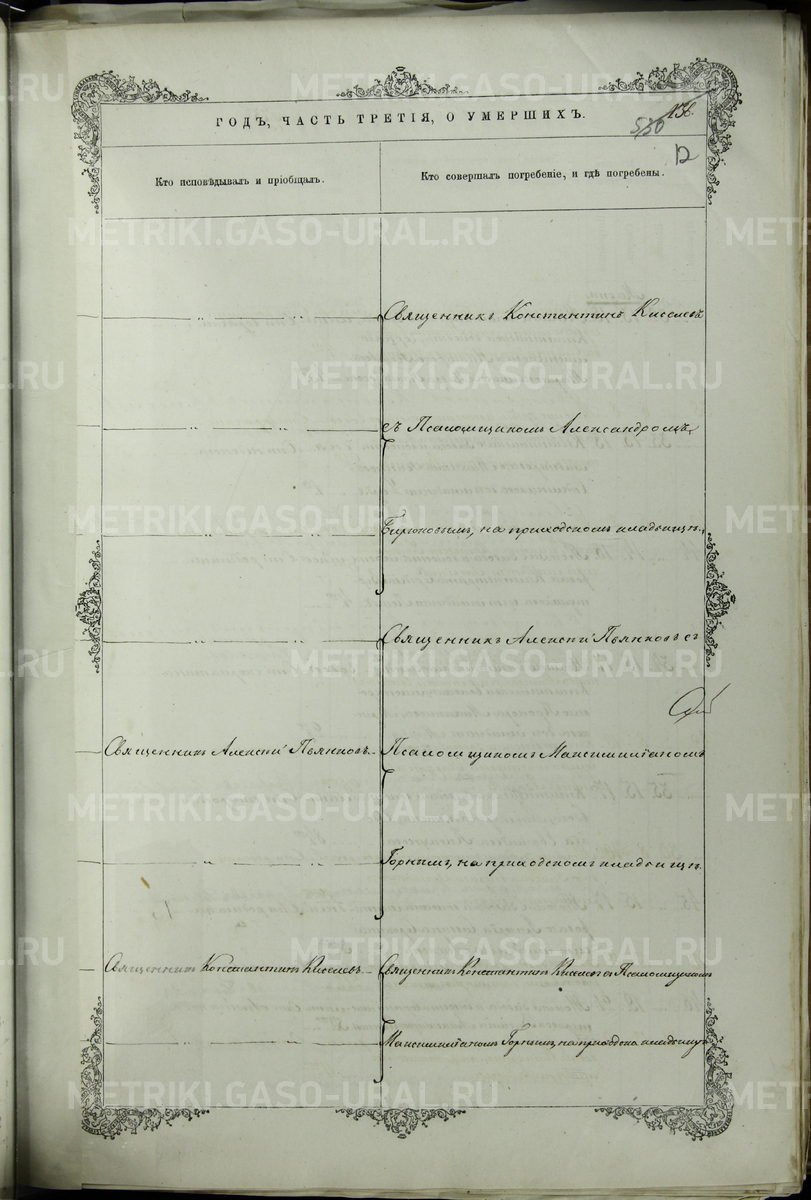 ГОДЪ, ЧАСТЬ ТРЕТІЯ, О УМЕРШИХЪ.
530 138.
12
Кто исповѣдывалъ и пріобщалъ.
Кто совершалъ погребеніе, и гдѣ погребены.
Священникъ Константинъ Киселевъ
съ Псаломщикомъ Александромъ
Бирюковымъ, на приходскомъ кладбищѣ.
Священникъ Алексѣй Пьянковъ съ
Священникъ Алексѣй Пьянковъ.
Псаломщикомъ Максимиліаномъ
Горнымъ, на приходскомъ кладбищѣ.
Священникъ Константинъ Киселевъ
Священникъ Константинъ Киселевъ съ Псаломщикомъ
Максимиліаномъ Горнымъ, на приходско кладбищѣ
METRIKI.GASO-URAL.RU